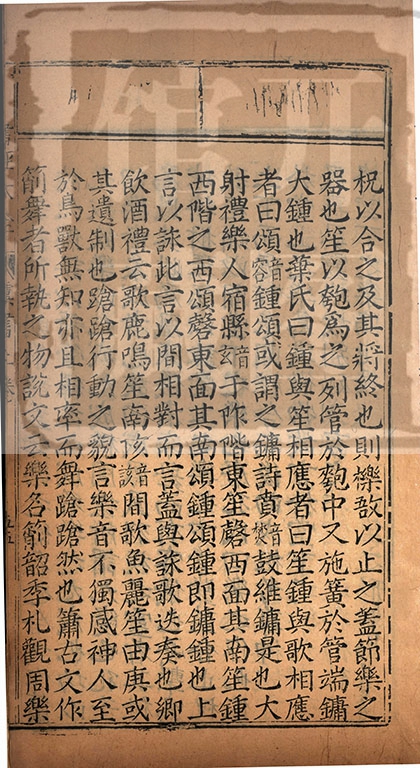 柷以合之及其將終也則櫟敔以止之蓋節樂之
器也笙以匏爲之列管於匏中又施簧於管端鏞
大鍾也葉氏曰鍾與笙相應者曰笙鍾與歌相應
者曰頌音容鍾頌或謂之鏞詩賁音焚鼓維鏞是也大
射禮樂人宿縣音玄于阼階東笙磬西面其南笙鍾
西階之西頌磬東面其南頌鍾頌鍾即鏞鍾也上
言以詠此言以間相對而言蓋與詠歌迭奏也鄉
飲酒禮云歌鹿鳴笙南陔音該間歌魚麗笙由庚或
其遺制也蹌蹌行動之貌言樂音不獨感神人至
於鳥獸無知亦且相率而舞蹌蹌然也簫古文作
箾舞者所執之物說文云樂名箾韶季札觀周樂